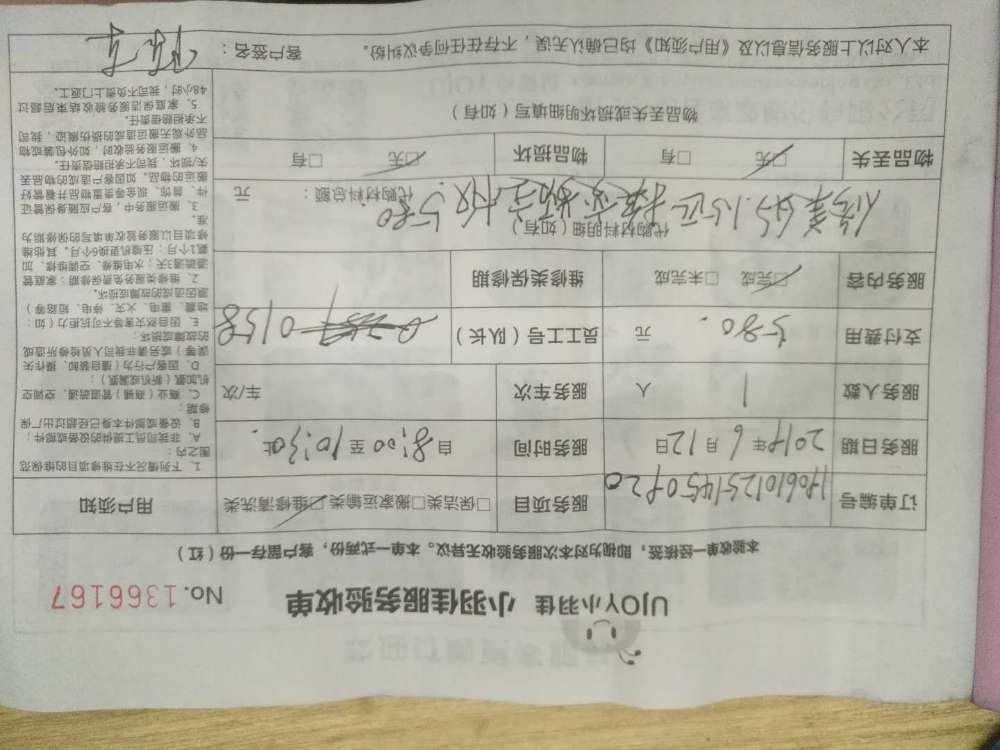 UJOY小羽佳 小羽佳服务验收单 No.1366167
本验收单一经核签，即视为对本次服务验收无异议。本单一式两份，客户留存一份（红）
订单编号
服务项目 □保洁类□搬家运输类☑维修清洗类
用户须知
服务日期 2019年6月12日
服务时间 自 8:00 至 10:30止
服务人数 1 人
服务车次 车/次
支付费用 580. 元
员工工号（队长） 0158
服务内容 ☑完成 □未完成
维修类保修期
代购材料明细（如有）
代购材料总额： 元
580
物品丢失 ☑无 □有
物品损坏 ☑无 □有
物品丢失或损坏明细填写（如有）
1. 下列情况不在维修项目的维保范
围之内：
A、非我司员工提供的设备或部件；
B、设备或部件本身已经超过出厂保
修期；
C、商业（商铺）管道疏通、空调空
机加氟（新机或漏氟）；
D、因客户行为（擅自装卸、操作失
误等）或另请非我司人员检修所造成
的故障或损坏；
E、因自然灾害等不可抗拒力（如：
地震、雷电、火灾、停电、短路等）
原因造成的故障或损坏。
2. 维修类服务免费保修期：家庭管
道疏通3天；水电维修、空调维修、加
氟1个月；压缩机更换6个月，其他维
修项目以服务验收单填写的保修期为
准。
3. 搬运服务中，客户应随身保管证
件、首饰、现金等贵重物品并看管好
搬运的物品，如因客户造成的物品丢
失/损坏，我司不承担赔偿责任。
4. 搬运服务验收时，如外包装或物
品外观无搬运造成的损伤痕迹，我司
不承担赔偿责任。
5. 家庭保洁服务验收结束后超过
48小时，我司不负责上门返工。
本人对以上服务信息以及《用户须知》均已确认无误，不存在任何争议纠纷。 客户签名：